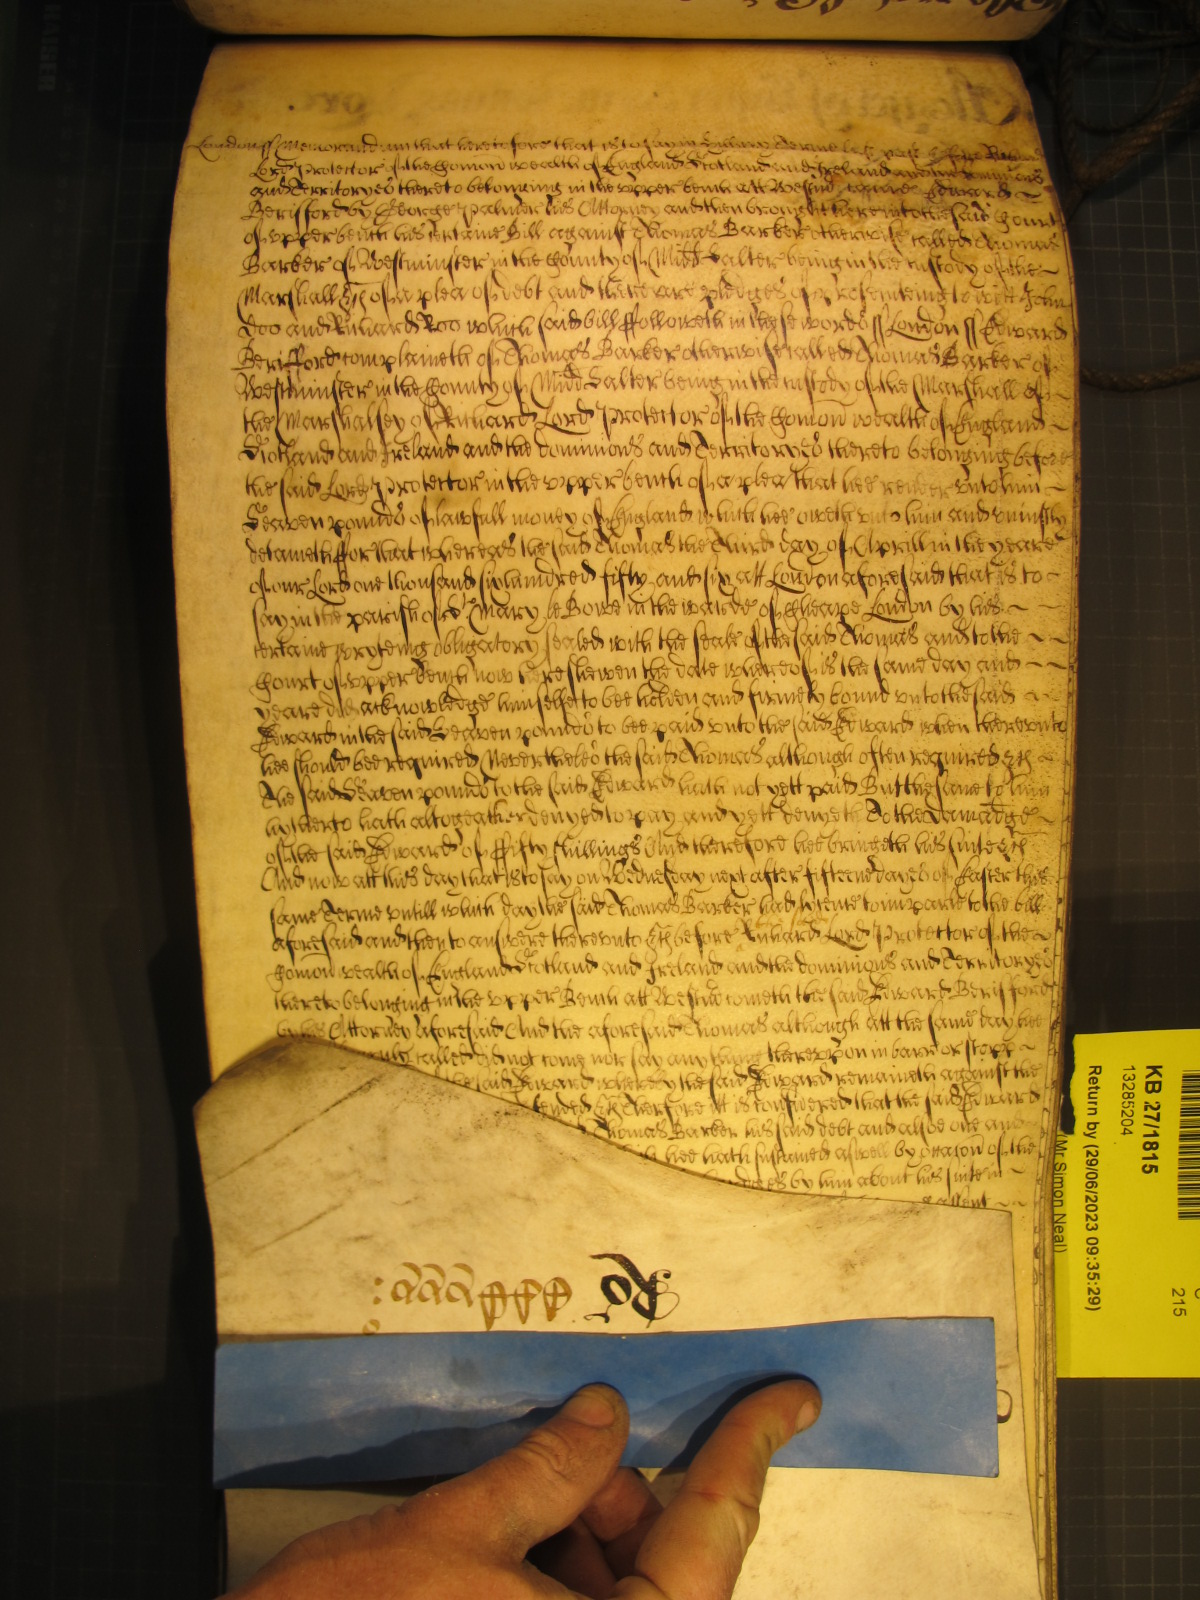 London ss Memorandum that heretofore that is to say in Hillary Terme last past before Richard
Lord Protector of the Comon wealth of England Scotland and Ireland and the dominions
and Territoryes thereto belonging in the vpper bench att Westmr came Edward
Berisford by George Palmer his Attorney and then brought here into the said Court
of vpper bench his certaine Bill against Thomas Barker otherwise called Thomas
Barker of Westminster in the County of Midd Salter being in the custody of the
Marshall &c of a plea of debt and there are pledges of prosecuteing to witt John
Doo and Richard Roo which said bill ffolloweth in these words ss London ss Edward
Berisford complaineth of Thomas Barker otherwise called Thomas Barker of
Westminster in the County of Midd Salter being in the custody of the Marshall of
the Marshalsey of Richard Lord Protector of the Comon wealth of England
Scotland and Ireland and the dominions and Territoryes thereto belonging before
the said Lord Protector in the vpper bench of a plea that hee render vnto him
Seaven pounds of lawfull money of England which hee oweth vnto him and vniustly
detaineth ffor that whereas the said Thomas the Third day of Aprill in the yeare
of our Lord one thousand six hundred fifty and six att London aforesaid that is to
say in the parish of St Mary le Bowe in the warde of Cheape London by his
certaine wryteing obligatory sealed with the seale of the said Thomas and to the
Court of vpper bench now here shewen the date whereof is the same day and
yeare did acknowledge himselfe to bee holden and firmely bound vnto the said
Edward in the said Seaven pounds to bee paid vnto the said Edward when therevnto
hee should bee required Neverthelesse the said Thomas although often required &c
The said Seaven pounds to the said Edward hath not yett paid But the same to him
hytherto hath altogeather denyed to pay and yett denyeth To the damadge
of the said Edward of ffifty shillings And therefore hee bringeth his suite &c
And now att this day that is to say on Wednesday next after fifteene dayes of Easter this
same Terme vntill which day the said Thomas Barker had lycence to imparle to the bill
aforesaid and then to answere therevnto &c before Richard Lord Protector of the
Comon wealth of England Scotland and Ireland and the dominions and Territoryes
thereto belonging in the vpper Bench att Westmr cometh the said Edward Berisford
by his Attorney aforesaid And the aforesaid Thomas although att the same day hee
called did not come nor say any thing therevpon in barr or stopp
the said Edward whereby the said Edward remaineth against the
&c Therfore itt is considered that the said Edward
Thomas Barker his said debt and alsoe one and
hee hath susteined aswell by occasion of the
by him about his suite in
Ro
KB 27/1815
13285204
Return by (29/06/2023 09:35:29)
(Mr Simon Neal)
215